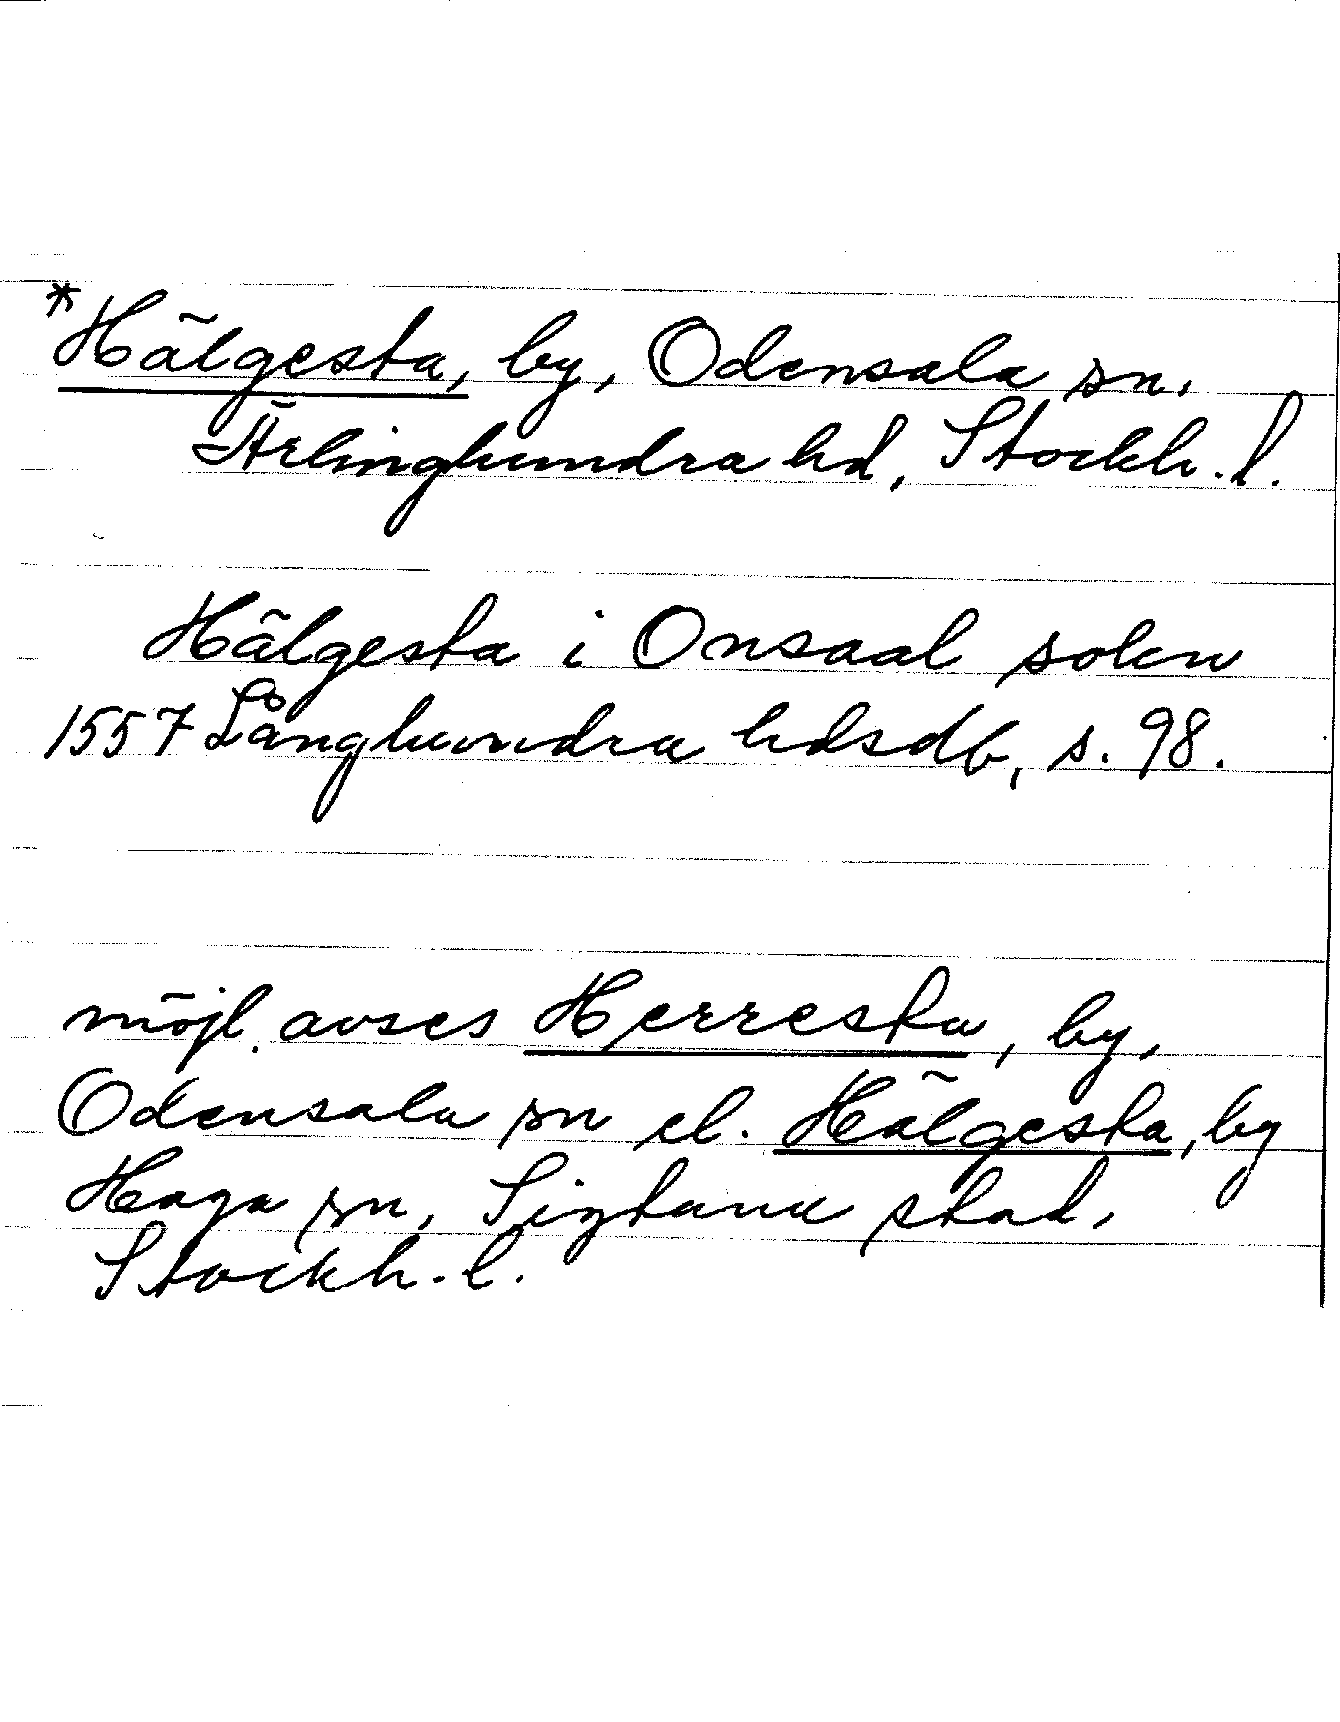 *Hälgesta, by, Odensala sn.
Ärlinghundra hd, Stockh. l.
Hälgesta i Onsaal sokn
1557 Långhundra hdsdb, s. 98.
möjl. avses Herresta, by,
Odensala sn el. Hälgesta, by
Haga sn, Sigtuna stad,
Stockh. l.